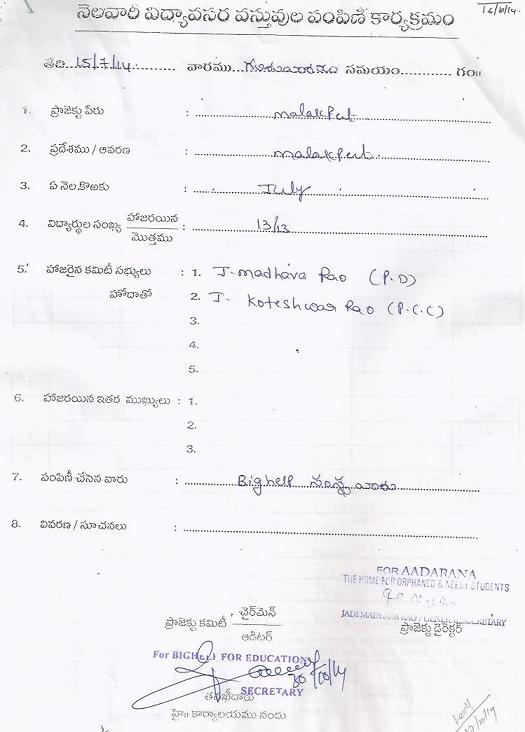 16/10/14.
నెలవారి విద్యావసర వస్తువుల పంపిణి కార్యక్రమం
తేది 15/7/14 వారము...గురువారం సమయం............ గం॥
1. ప్రాజెక్టు పేరు : malakpet
2. ప్రదేశము / ఆవరణ : malakpet
3. ఏ నెల కొఱకు : July
4. విద్యార్థుల సంఖ్య హాజరయిన / మొత్తము : 13/13
5. హాజరైన కమిటీ సభ్యులు : 1. J. madhava Rao (P.D)
హోదాతో 2. J. Koteshwar Rao (P.C.C)
3.
4.
5.
6. హాజరయిన ఇతర ముఖ్యులు : 1.
2.
3.
7. పంపిణీ చేసిన వారు : Bighelp సంస్థ వారు
8. వివరణ / సూచనలు :
FOR AADARANA
THE HOME FOR ORPHANED & NEEDY STUDENTS
JADI MADHAVA RAO / GENERAL SECRETARY
ప్రాజెక్టు డైరెక్టర్
ప్రాజెక్టు కమిటీ చైర్‌మెన్ / ఆడిటర్
For BIGHELP FOR EDUCATION
SECRETARY
హై॥ కార్యాలయము నందు